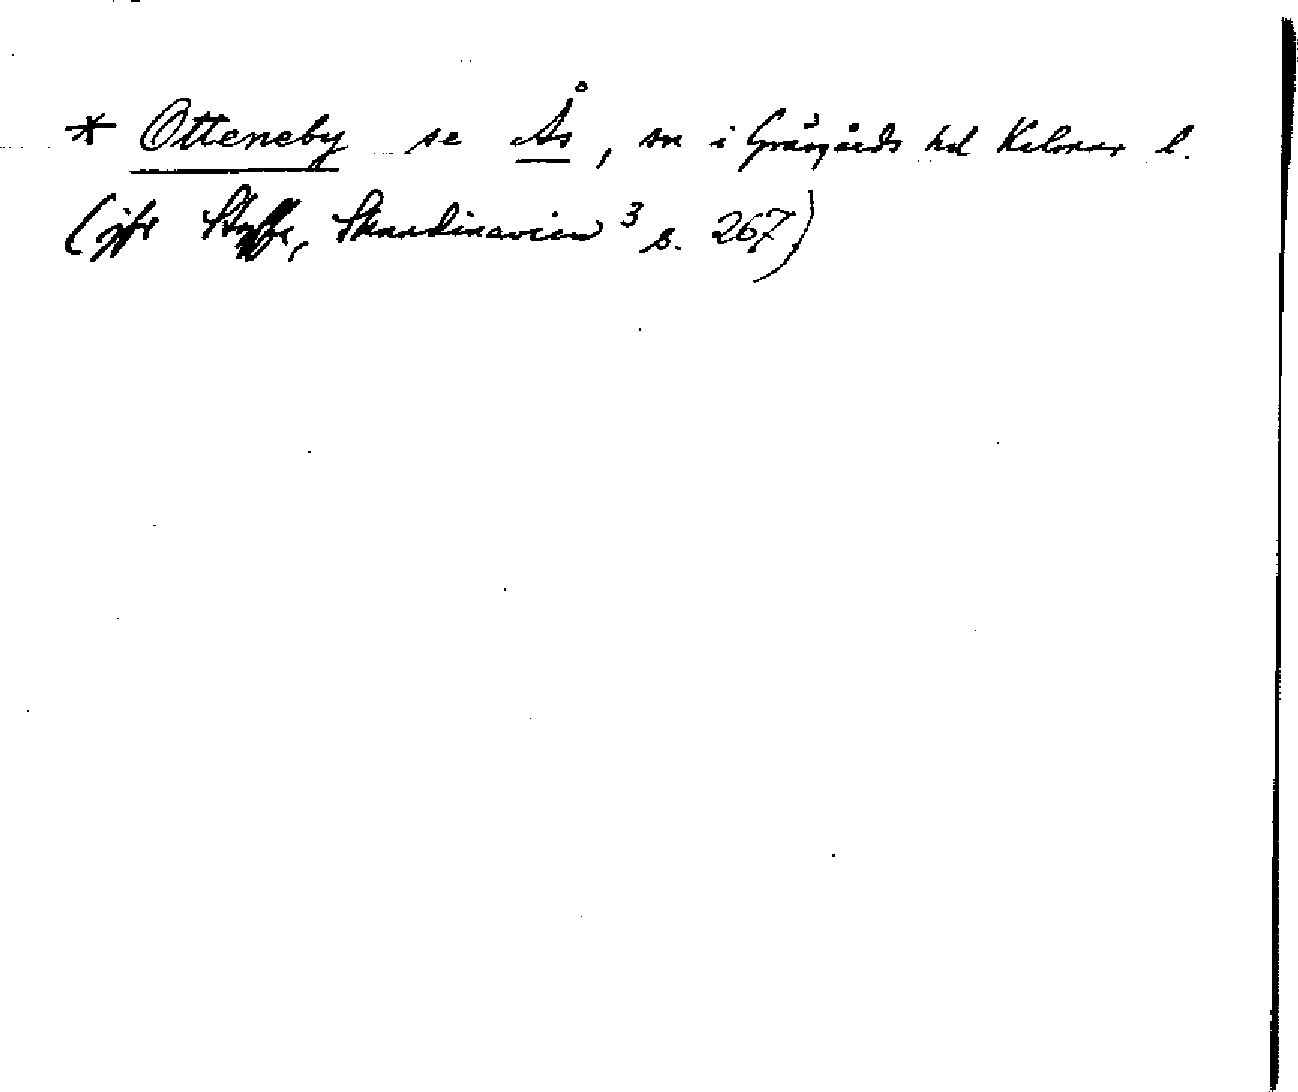 * Otteneby se Ås, sn i Gräsgårds hd Kalmar l.
(jfr Styffe, Skandinavien³ s. 267)